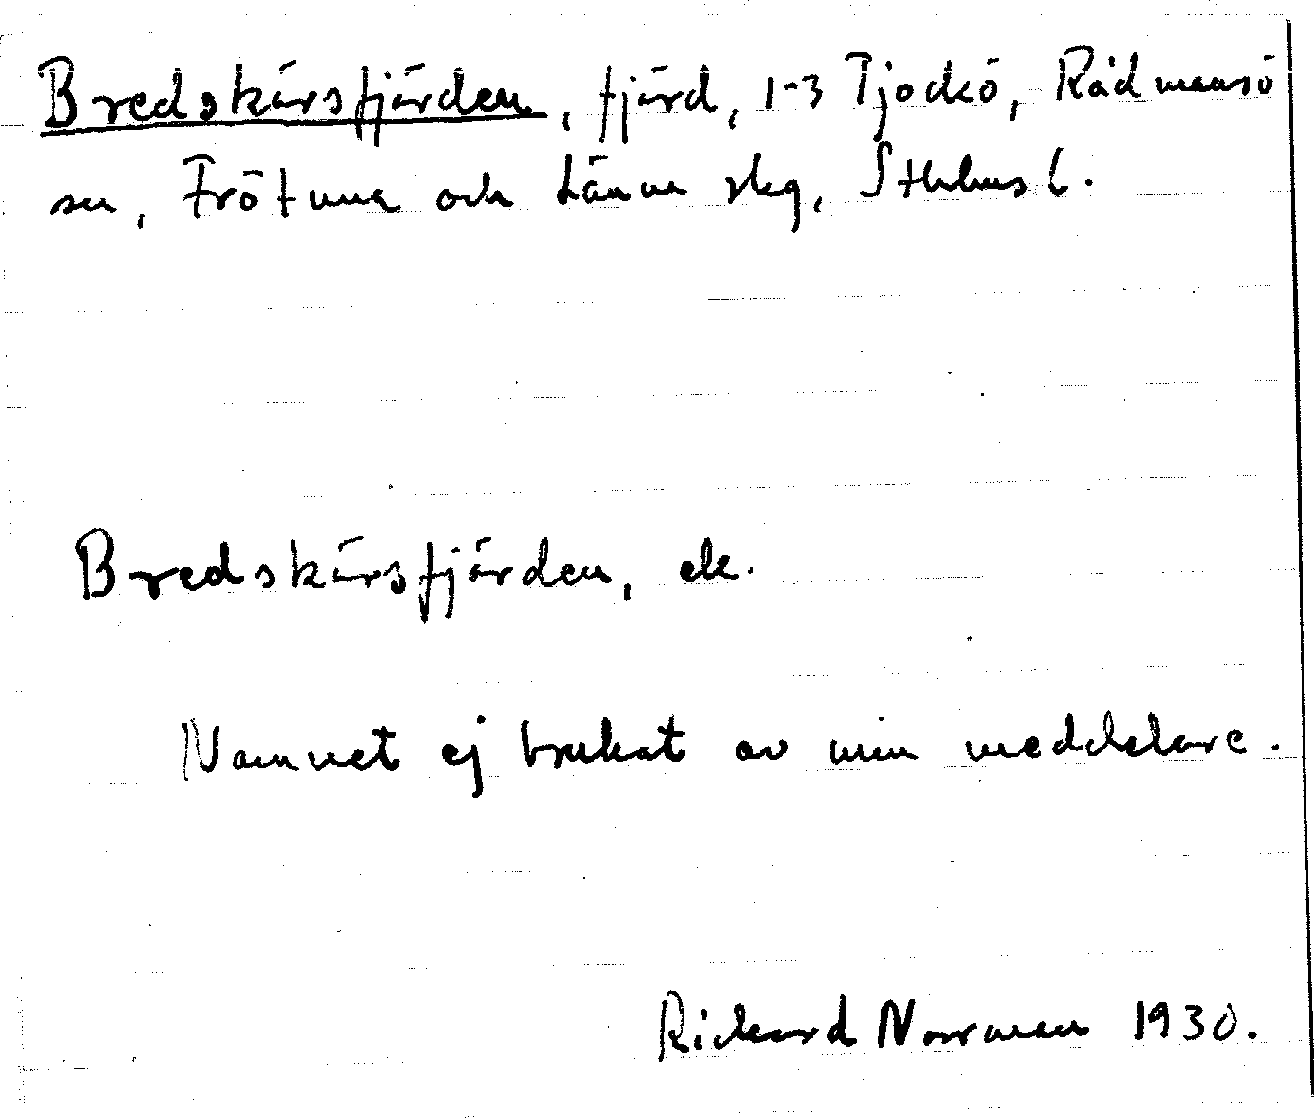 Bredskärsfjärden, fjärd, 1-3 Tjockö, Rådmansö
sn, Frötuna och Länna skg, Sthlms l.
Bredskärsfjärden, ek.
Namnet ej brukat av min meddelare.
Rickard Norrman 1930.